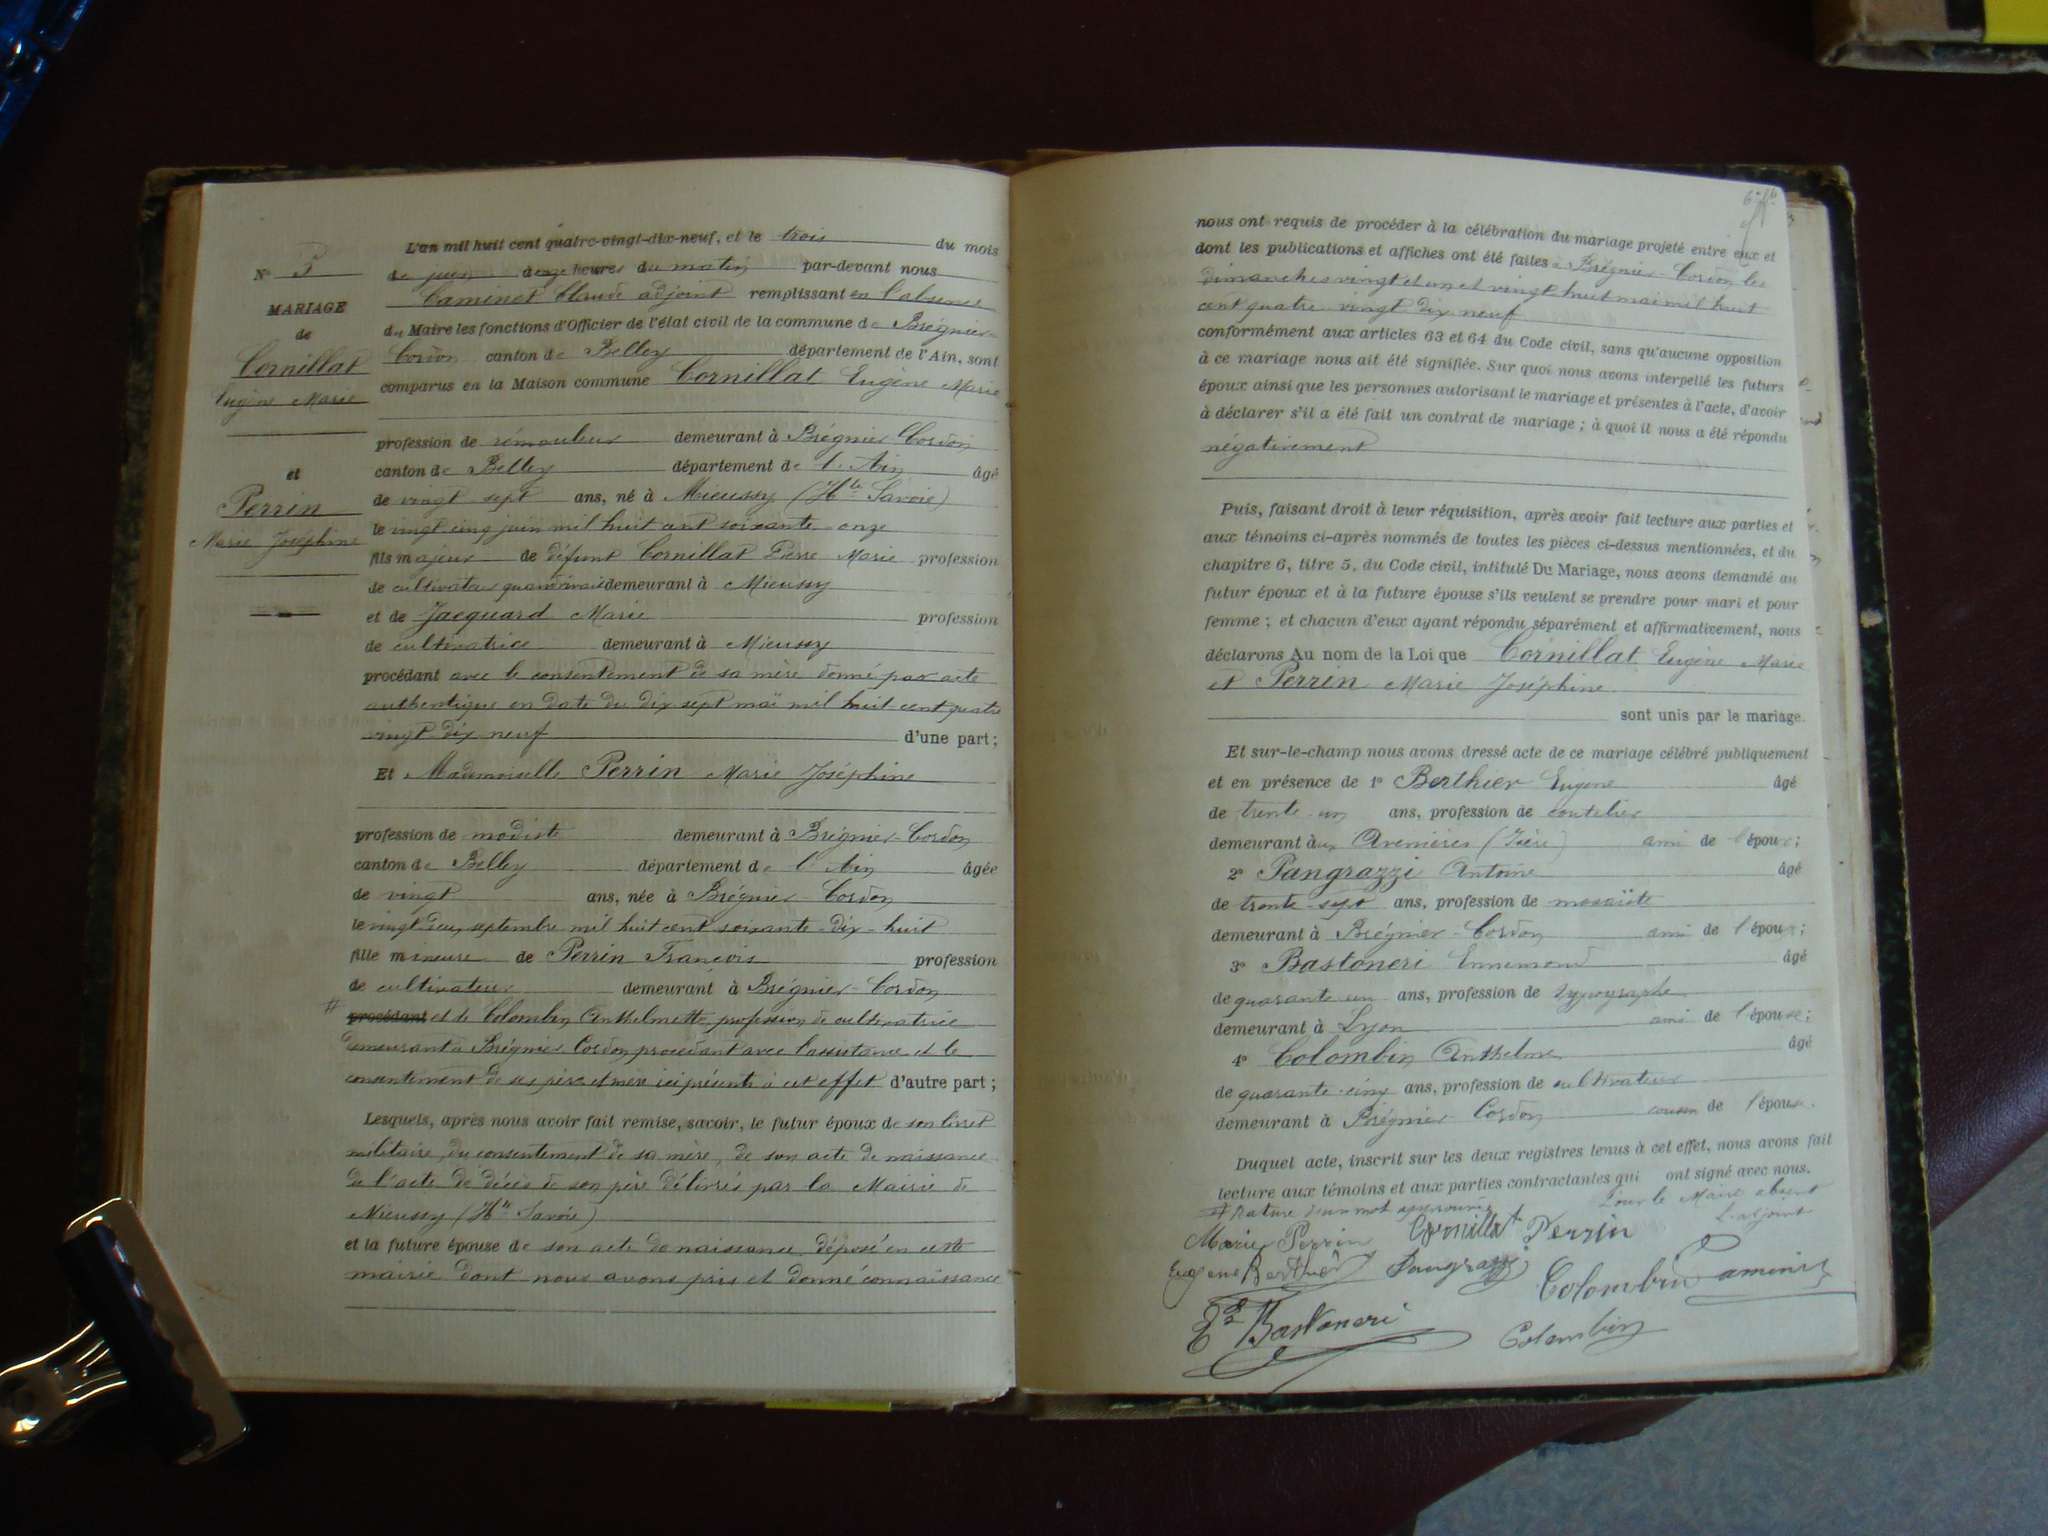 N° 3
MARIAGE
de
Cornillat
Eugène Marie
et
Perrin
Marie Joséphine
L'an mil huit cent quatre-vingt-dix-neuf, et le trois du mois
de juin à onze heures du matin par-devant nous
Caminet Claude adjoint remplissant en l'absence
du Maire les fonctions d'Officier de l'état civil de la commune de Brégnier-
Cordon canton de Belley département de l'Ain, sont
comparus en la Maison commune Cornillat Eugène Marie
profession de rémouleur demeurant à Brégnier Cordon
canton de Belley département de l'Ain âgé
de vingt sept ans, né à Mieussy (Hte Savoie)
le vingt cinq juin mil huit cent soixante onze
fils majeur de défunt Cornillat Pierre Marie profession
de cultivateur quand vivait demeurant à Mieussy
et de Jacquard Marie profession
de cultivatrice demeurant à Mieussy
procédant avec le consentement de sa mère donné par acte
authentique en date du dix sept mai mil huit cent quatre
vingt dix neuf d'une part;
Et Mademoiselle Perrin Marie Joséphine
profession de modiste demeurant à Brégnier-Cordon
canton de Belley département de l'Ain âgée
de vingt ans, née à Brégnier-Cordon
le vingt deux septembre mil huit cent soixante-dix-huit
fille mineure de Perrin François profession
de cultivateur demeurant à Brégnier-Cordon
# procédant et de Colombin Anthelmette profession de cultivatrice
demeurant à Brégnier Cordon procédant avec l'assistance et le
consentement de ses père et mère ici présents à cet effet d'autre part;
Lesquels, après nous avoir fait remise, savoir, le futur époux de son livret
militaire, du consentement de sa mère, de son acte de naissance
de l'acte de décès de son père délivrés par la Mairie de
Mieussy (Hte Savoie)
et la future épouse de son acte de naissance déposé en cette
mairie dont nous avons pris et donné connaissance
nous ont requis de procéder à la célébration du mariage projeté entre eux et
dont les publications et affiches ont été faites à Brégnier-Cordon les
dimanches vingt et un et vingt huit mai mil huit
cent quatre vingt dix neuf
conformément aux articles 63 et 64 du Code civil, sans qu'aucune opposition
à ce mariage nous ait été signifiée. Sur quoi nous avons interpellé les futurs
époux ainsi que les personnes autorisant le mariage et présentes à l'acte, d'avoir
à déclarer s'il a été fait un contrat de mariage; à quoi il nous a été répondu
négativement
Puis, faisant droit à leur réquisition, après avoir fait lecture aux parties et
aux témoins ci-après nommés de toutes les pièces ci-dessus mentionnées, et du
chapitre 6, titre 5, du Code civil, intitulé Du Mariage, nous avons demandé au
futur époux et à la future épouse s'ils veulent se prendre pour mari et pour
femme; et chacun d'eux ayant répondu séparément et affirmativement, nous
déclarons Au nom de la Loi que Cornillat Eugène Marie
et Perrin Marie Joséphine
sont unis par le mariage.
Et sur-le-champ nous avons dressé acte de ce mariage célébré publiquement
et en présence de 1° Berthier Eugène âgé
de trente un ans, profession de coutelier
demeurant aux Avenières (Isère) ami de l'époux;
2° Pangrazzi Antoine âgé
de trente-sept ans, profession de mosaïste
demeurant à Brégnier-Cordon ami de l'époux;
3° Bastoneri Ennemond âgé
de quarante un ans, profession de typographe
demeurant à Lyon ami de l'épouse;
4° Colombin Anthelme âgé
de quarante-cinq ans, profession de cultivateur
demeurant à Brégnier Cordon cousin de l'épouse.
Duquel acte, inscrit sur les deux registres tenus à cet effet, nous avons fait
lecture aux témoins et aux parties contractantes qui ont signé avec nous.
# Rature d'un mot approuvée Pour le Maire absent
L'adjoint
Marie Perrin Cornillat Perrin
Eugène Berthier Pangrazzi Colombin Caminet
Bastoneri Colombin